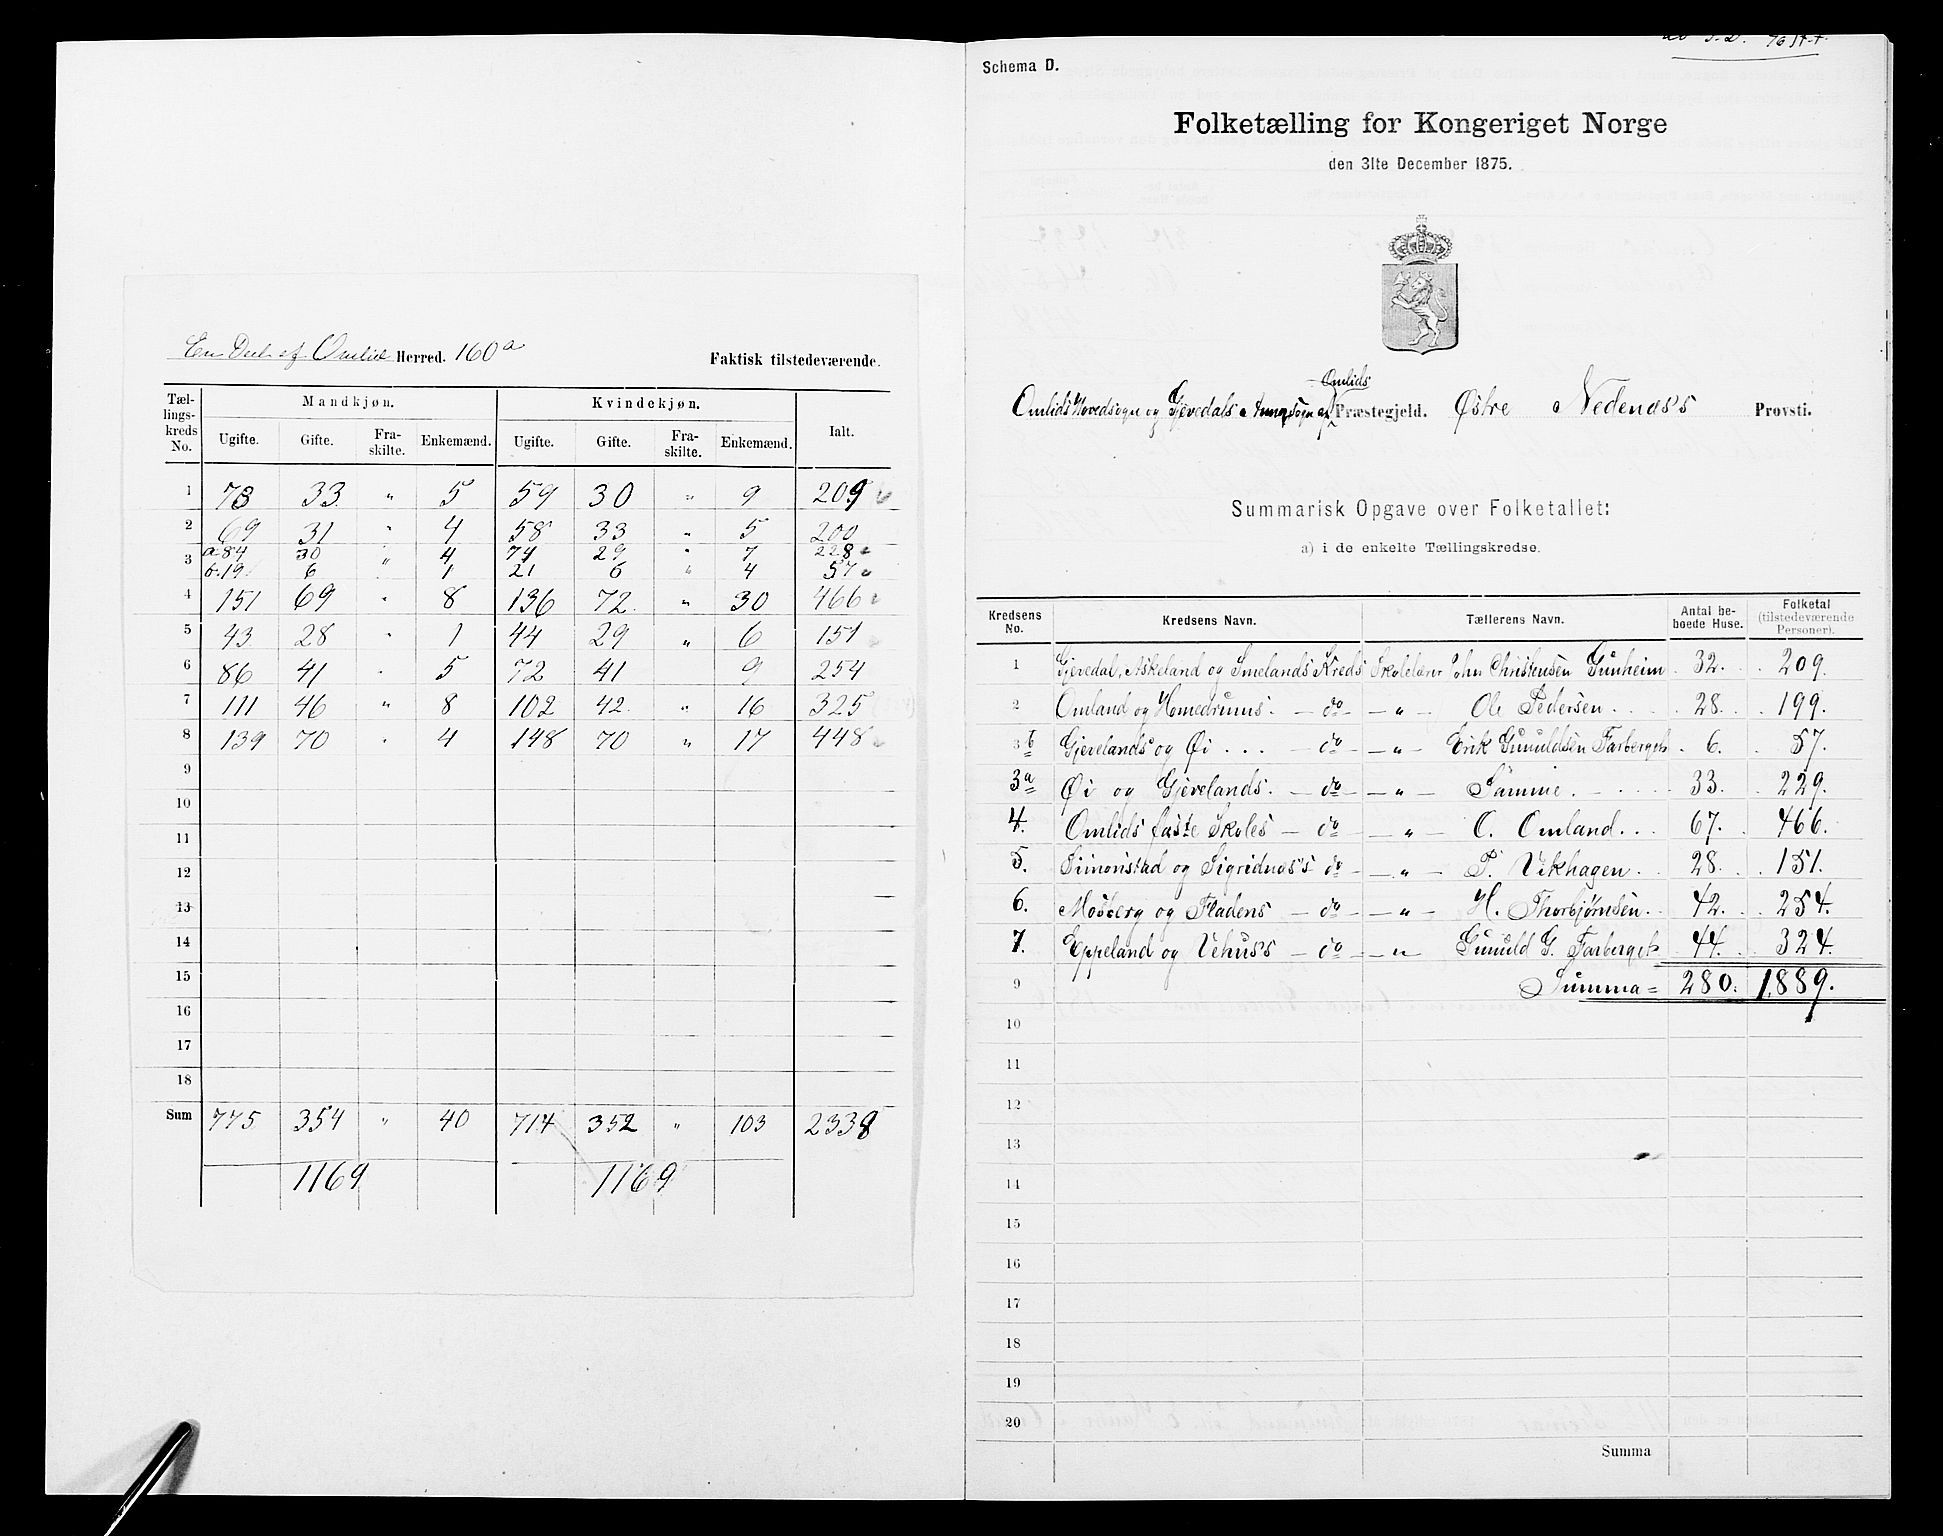 En Deel af Omlid Herred. 160a
Faktisk tilstedeværende.
Tællingskreds No. Mandkjøn. Kvindekjøn. Ialt.
Ugifte. Gifte. Fraskilte. Enkemænd. Ugifte. Gifte. Fraskilte. Enkemænd.
1 73 33 " 5 59 30 " 9 209
2 69 31 " 4 58 33 " 5 200
3 a. 84 30 " 4 74 29 " 7 228
b. 19 6 1 21 6 " 4 57
4 151 69 " 8 136 72 " 30 466
5 43 28 " 1 44 29 " 6 151
6 86 41 " 5 72 41 9 254
7 111 46 " 8 102 42 " 16 325
8 139 70 " 4 148 70 " 17 448
9
10
11
12
13
14
15
16
17
18
Sum 775 354 " 40 714 352 " 103 2338
1169 1169
Schema D.
Folketælling for Kongeriget Norge
den 31te December 1875.
Omlids
Omlids Hovedsogn og Gjevedals Annexsogn af Præstegjeld. Østre Nedenæs's Provsti.
Summarisk Opgave over Folketallet:
a) i de enkelte Tællingskredse.
Kredsens No. Kredsens Navn. Tællerens Navn. Antal beboede Huse. Folketal (tilstedeværende Personer).
1 Gjevedal, Askeland og Smelands Kreds Skolelærer John Christensen Gunheim 32. 209.
2 Omland og Homedrums. — do — — " — Ole Pedersen 28. 199.
3 b Gjevelands og Øi . . . — do — " — Erik Gunuldsen Farberget 6. 57.
3a Øi og Gjevelands. — do — — " — Samme. 33. 229.
4. Omlids faste Skoles — do — — " — O. Omland. 67. 466.
5. Simonstad og Sigridnæs's do — — " — P. Vikhagen. 28. 151.
6. Mosberg og Fladens — do — — " — H. Thorbjørnsen. 42. 254.
7. Eppeland og Vehus's — do — — " — Gunuld G. Farberget 44. 324.
9 Summa = 280. 1,889.
10
11
12
13
14
15
16
17
18
19
20
Summa